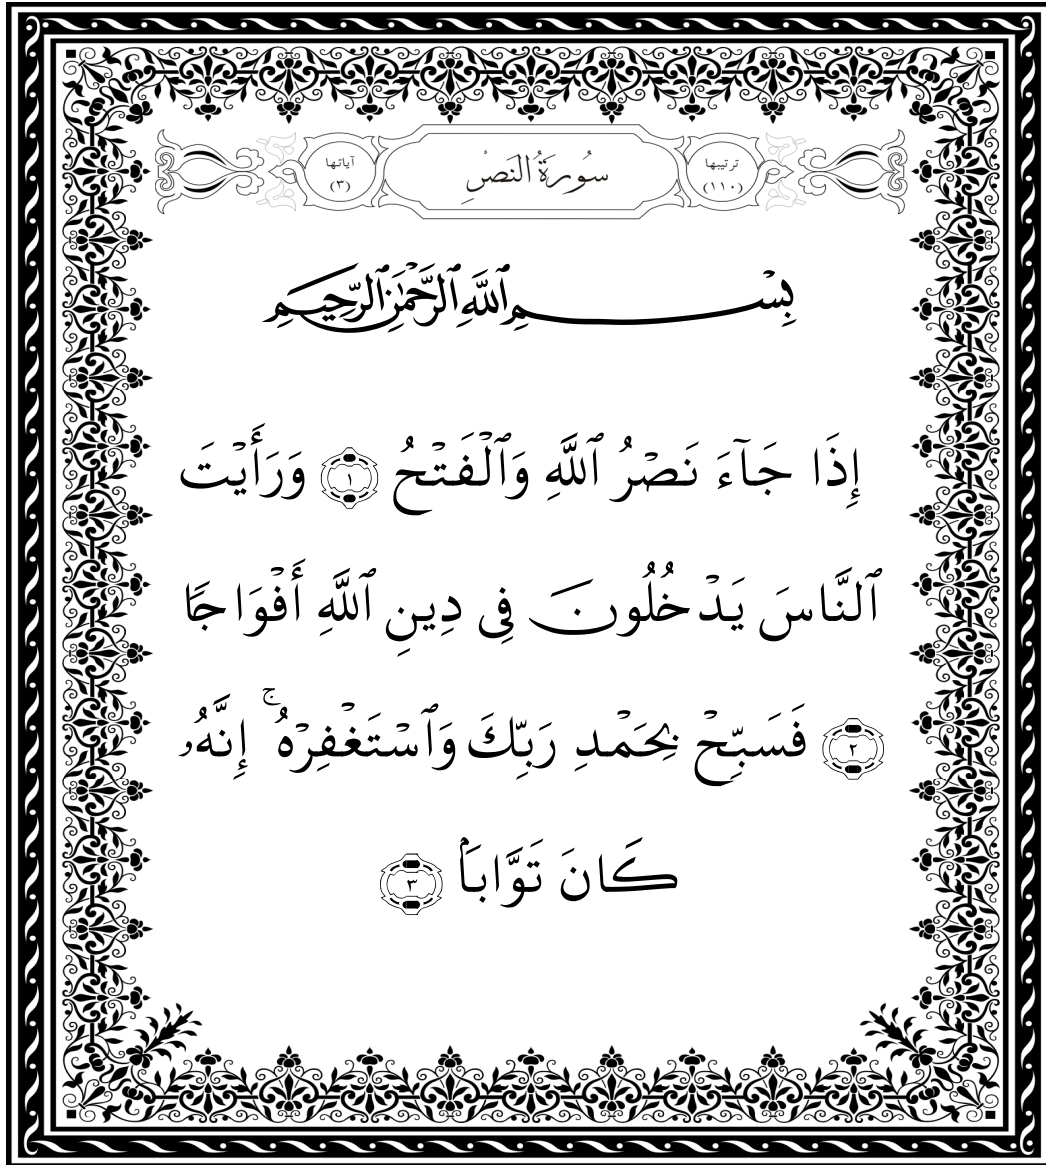 ترتيبها
(١١٠)
سُورَةُ النَصْرِ
آياتها
(٣)
بِسْمِ ٱللَّهِ ٱلرَّحْمَٰنِ ٱلرَّحِيمِ
إِذَا جَآءَ نَصْرُ ٱللَّهِ وَٱلْفَتْحُ ١ وَرَأَيْتَ
ٱلنَّاسَ يَدْخُلُونَ فِى دِينِ ٱللَّهِ أَفْوَاجًا
٢ فَسَبِّحْ بِحَمْدِ رَبِّكَ وَٱسْتَغْفِرْهُ ۚ إِنَّهُۥ
كَانَ تَوَّابَۢا ٣